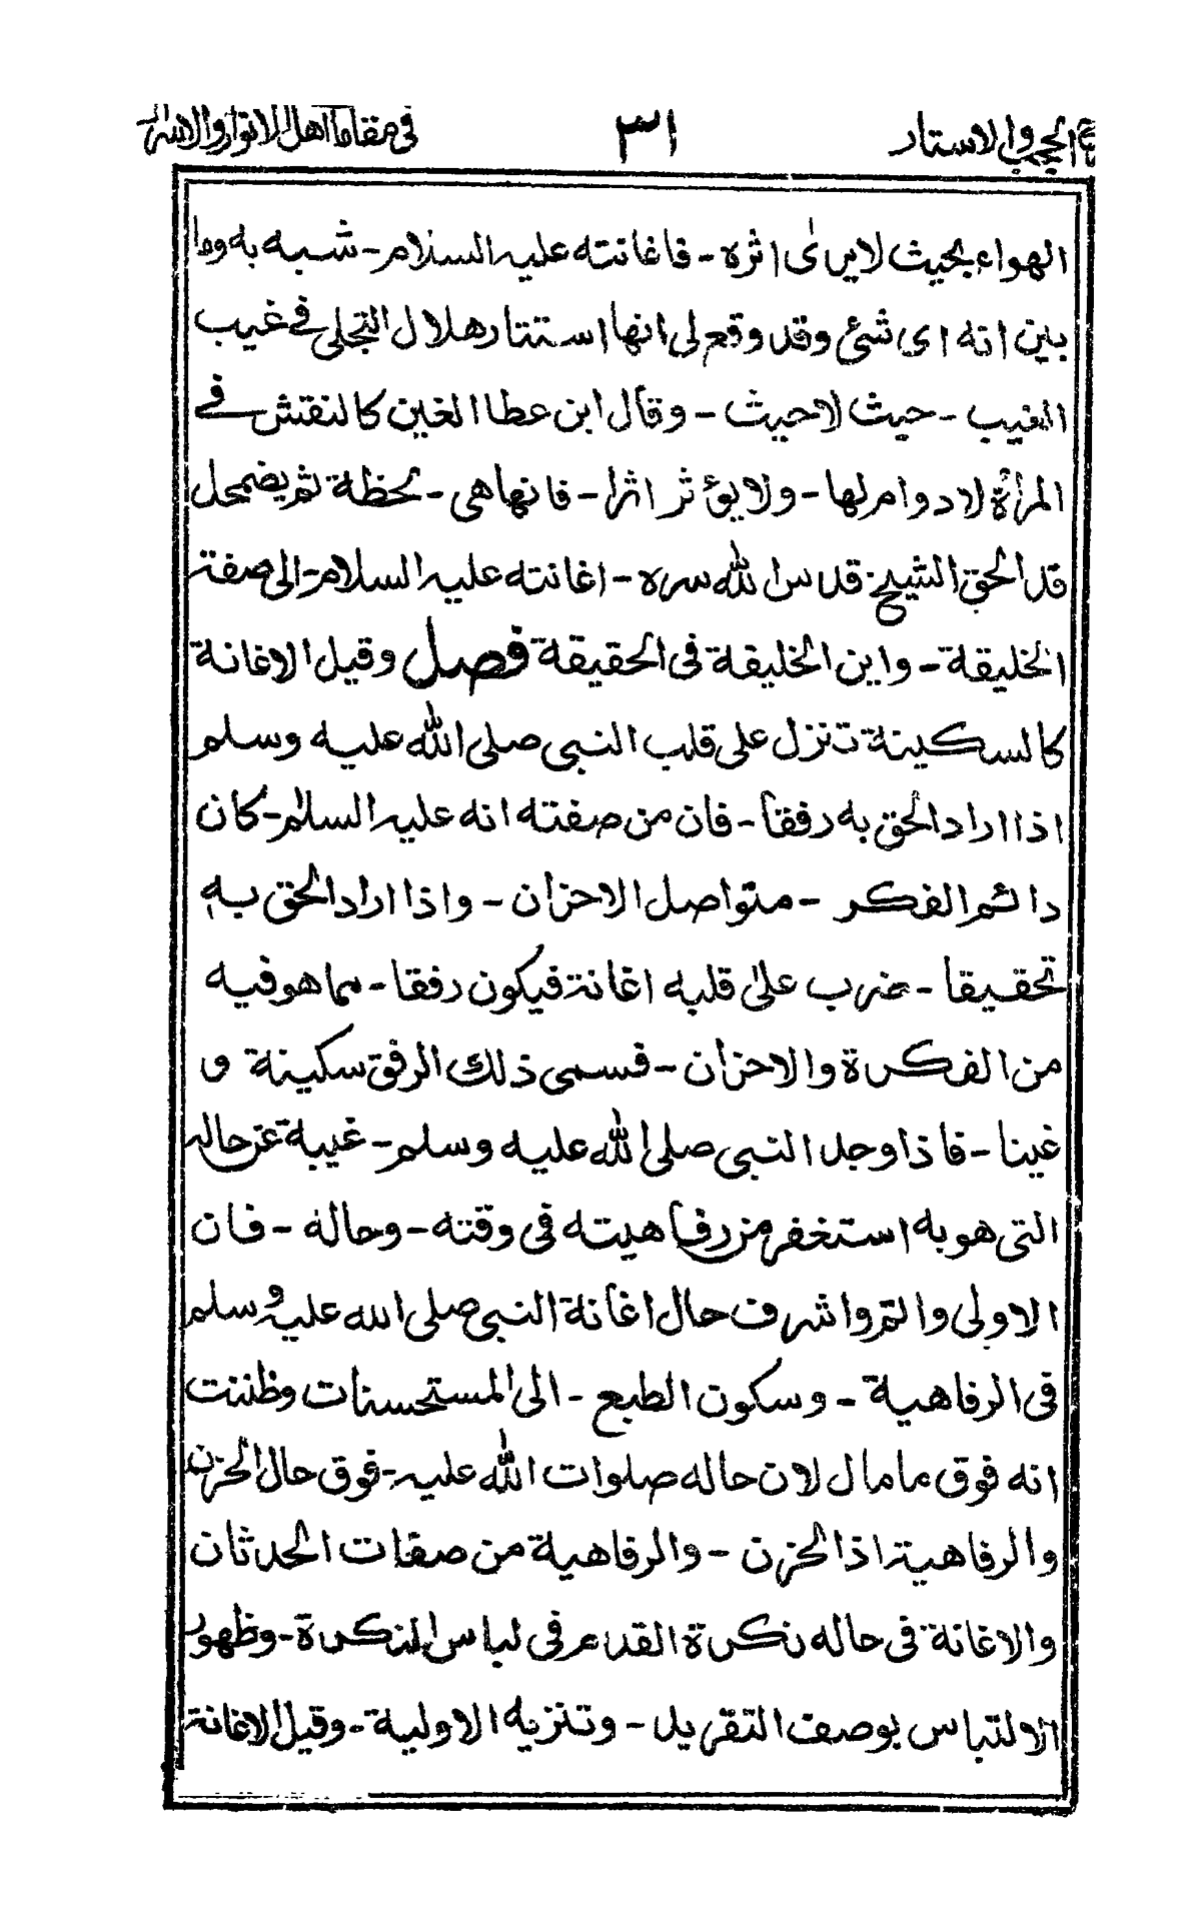 الحجب والاستار ٣١ فى مقامات اهل الانوار والاسرار
الهواء بحيث لايرى اثره - فاغانته عليه السلام - شبه به وما
بين انه اى شئ وقد وقع لى انها استتار هلال التجلى فے غيب
الغيب - حيث لاحيث - وقال ابن عطا الغين كالنقش فے
المرأة لادوام لها - ولا يؤثر اثرا - فانها هى - لحظة ثم يضمحل
قد الحق الشيخ قدس الله سره - اغانته عليه السلام - الى صفة
الخليقة - واين الخليقة فى الحقيقة فصل وقيل الاغانة
كالسكينة تنزل على قلب النبى صلى الله عليه وسلم
اذا اراد الحق به رفقا - فان من صفته انه عليه السلام - كان
دائم الفكر - متواصل الاحزان - واذا اراد الحق به
تحقيقا - ضرب على قلبه اغانة فيكون رفقا - مما هو فيه
من الفكرة والاحزان - فسمى ذلك الرفق سكينة و
غينا - فاذا وجد النبى صلى الله عليه وسلم - غيبة عن حاله
التى هو به استغفر من رفاهيته فى وقته - وحاله - فان
الاولى والتم واشرف حال اغانة النبى صلى الله عليه وسلم
فى الرفاهية - وسكون الطبع - الى المستحسنات وظننت
انه فوق ما مال لان حاله صلوات الله عليه - فوق حال الحزن
والرفاهية اذ الحزن - والرفاهية من صفات الحدثان
والاغانة فى حاله نكرة القدم فى لباس النكرة - وظهور
الالتباس بوصف التفريد - وتنزيه الاولية - وقيل الاغانة